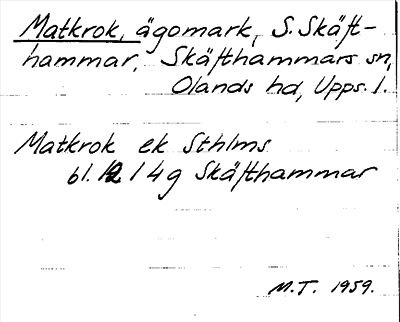 Matkrok, ägomark, S. Skäft-
hammar, Skäfthammars sn,
Olands hd, Upps. l.
Matkrok ek Sthlms
bl. 12 I 4g Skäfthammar
M.T. 1959.